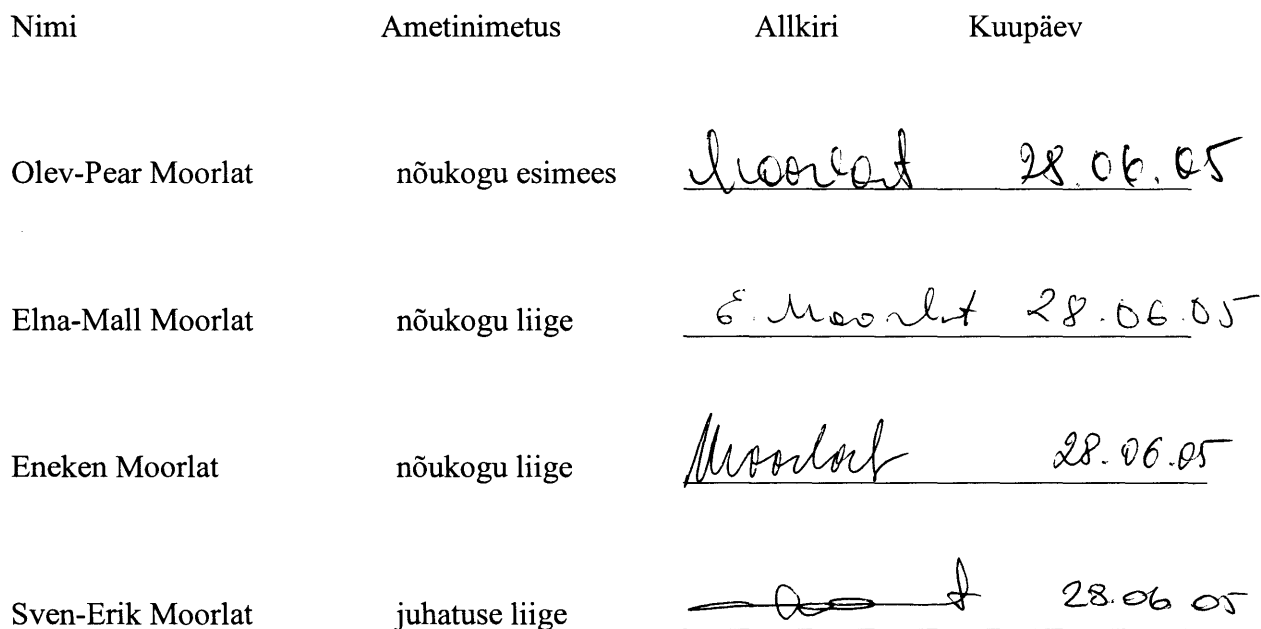 Nimi Ametinimetus Allkiri Kuupäev
Olev-Pear Moorlat nõukogu esimees Moorlat 28.06.05
Elna-Mall Moorlat nõukogu liige E. Moorlat 28.06.05
Eneken Moorlat nõukogu liige Moorlat 28.06.05
Sven-Erik Moorlat juhatuse liige 28.06 05